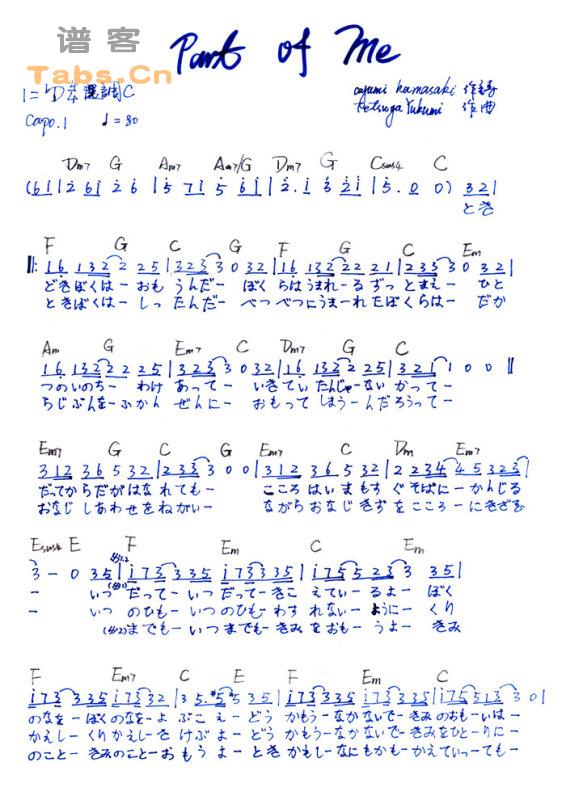 谱客
Part of Me
Tabs.Cn
1=♭D 本 選調C
Capo.1 ♩=80
ayumi hamasaki 作詩
作曲
Dm7 G Am7 Am7/G Dm7 G Csus4 C
(61|2 61 2 6|5 71 5 61|2. 1 3 21|5. 0 0) 321|
とき
F G C G F G C Em
‖: 16 132 2 25|323 3 0 32|16 132 22 21|233 3 0 321|
どきぼくは－おも うんだ－ ぼく らはうまれ－る ずっ とまえ－ ひと
ときぼくは－しっ たんだ－ べつ べつにうまれ れたぼくらは－ だか
Am G Em7 C Dm7 G C
16 132 2 25|323 3 0 32|16 132 2 25|321 1 0 0‖
つのいのち－ わけ あって－ いきてい たんじゃ－ない かって－
ちじぶんを－ふかん ぜんに－ おもって しまう－んだろうって－
Em7 G C G Em7 C Dm Em7
312 36 5 32|233 3 0 0|312 36 5 32|2 234 45 323|
だってからだがはな れても－ こころ はいまもす ぐそばに－かんじる
おなじ しあわせをねがい－ ながらおなじきず を こころ－にきざむ
Esus4 E F Em C Em
3 - 0 35|173 335 173335|175 523 3 35|
－ いつ だって－いつ だって－きこ えている－よ－ ぼく
－ いつ のひも－いつ のひも－わす れない－ように－ くり
(※2)までも－いつ までも－きみ をおも－うよ－ きみ
F Em7 C E F Em C
173 335 173 32|3 5. #5 5 35|173 335 173 335|175 513 3 0|
のなを－ぼく のなを－よ ぶこ え－どう かもう－なか ないで－きみ のおも－いは－
かえし－くり かえし－さ けぶ よ－どう かもう－なか ないで－きみ をひと－りに－
のこと－きみ のこと－お もう よ－とき かもし－なに もかも－か えていっ－ても－